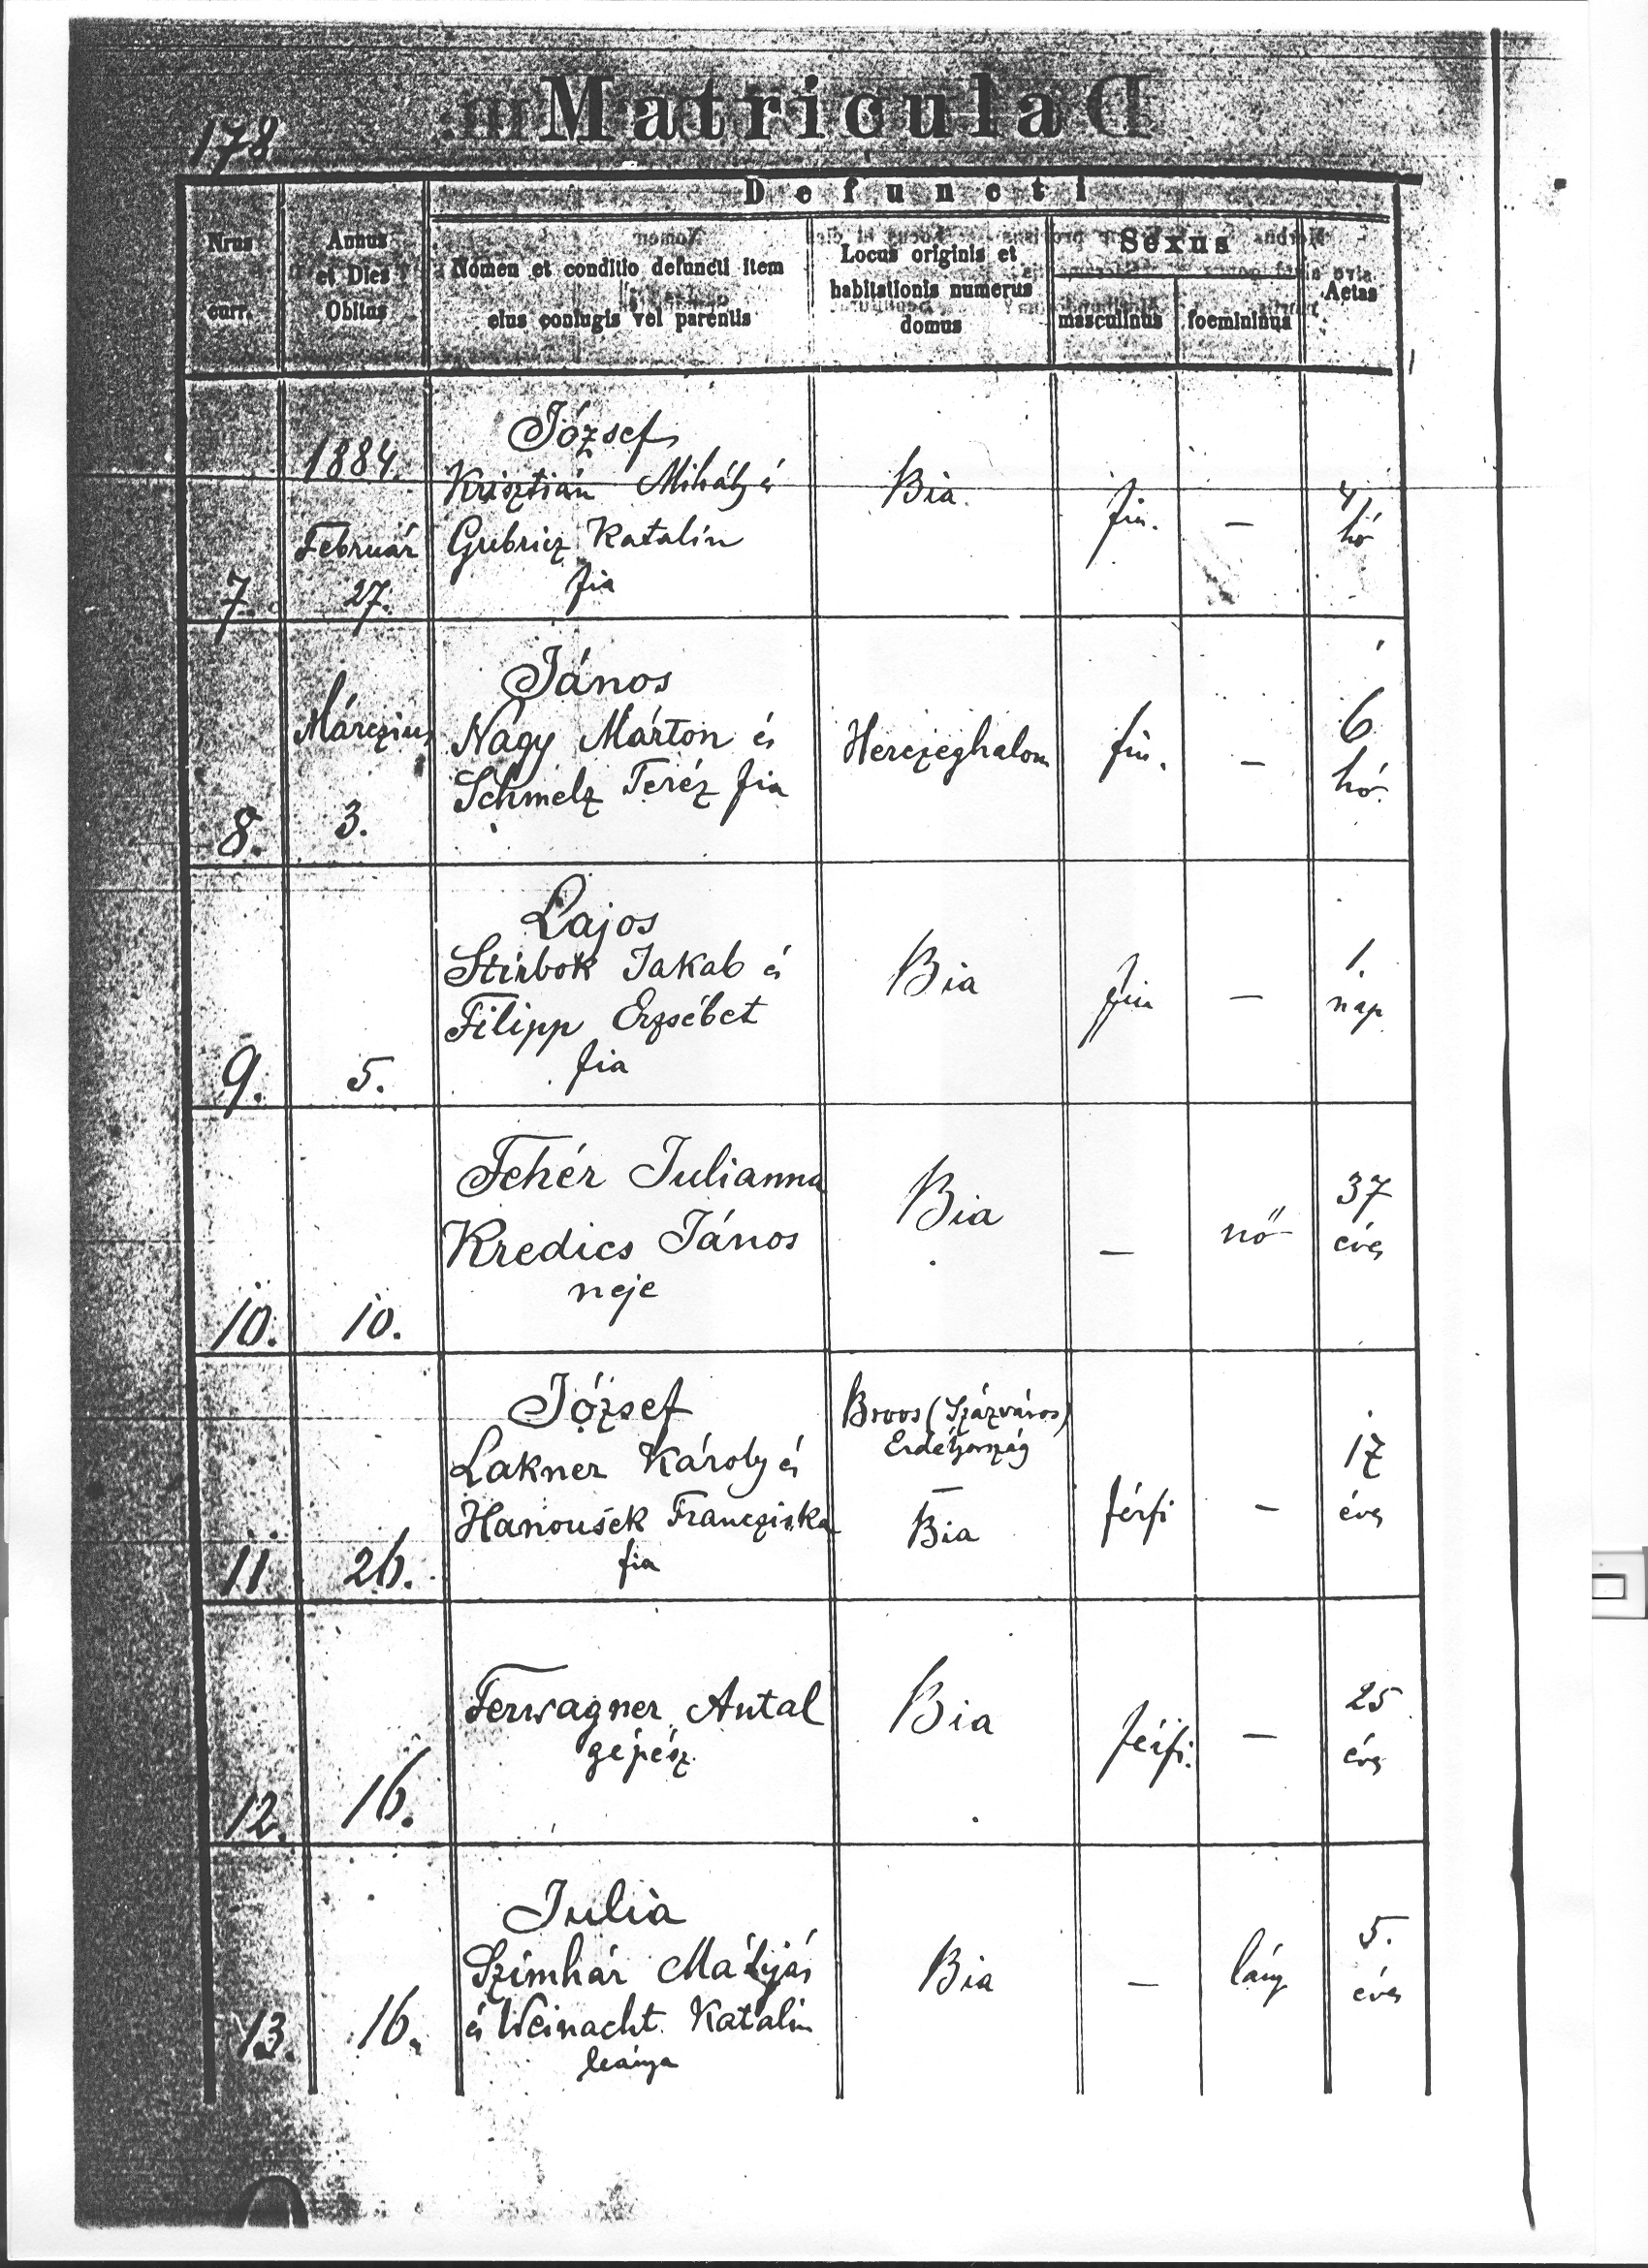 178
Matricula
Defuncti
Nrus curr.
Annus et Dies Obitus
Nomen et conditio defuncti item eius coniugis vel parentis
Locus originis et habitationis numerus domus
Sexus
masculinus
foemininus
Aetas
7.
1884.
Február
27.
József
Krisztián Mihály és
Katalin
fia
Bia
fiu.
—
hó
8.
Márczius
3.
János
Nagy Márton és
Schmelz Teréz fia
Herczeghalom
fiu.
—
6
hó.
9.
5.
Lajos
Stirbok Jakab és
Filipp Erzsébet
fia
Bia
fiu
—
1.
nap
10.
10.
Fehér Julianna
Kredics János
neje
Bia
—
nő
37
éves
11
26.
József
Lakner Károly és
Hanousek Francziska
fia
Broos (Szászváros)
Erdélyország
—
Bia
férfi
—
17
éves
12.
16.
Ferwagner Antal
gépész
Bia
férfi.
—
25
éves
13.
16.
Julia
Szimhár Mátyás
és Weinacht Katalin
leánya
Bia
—
lány
5.
éves